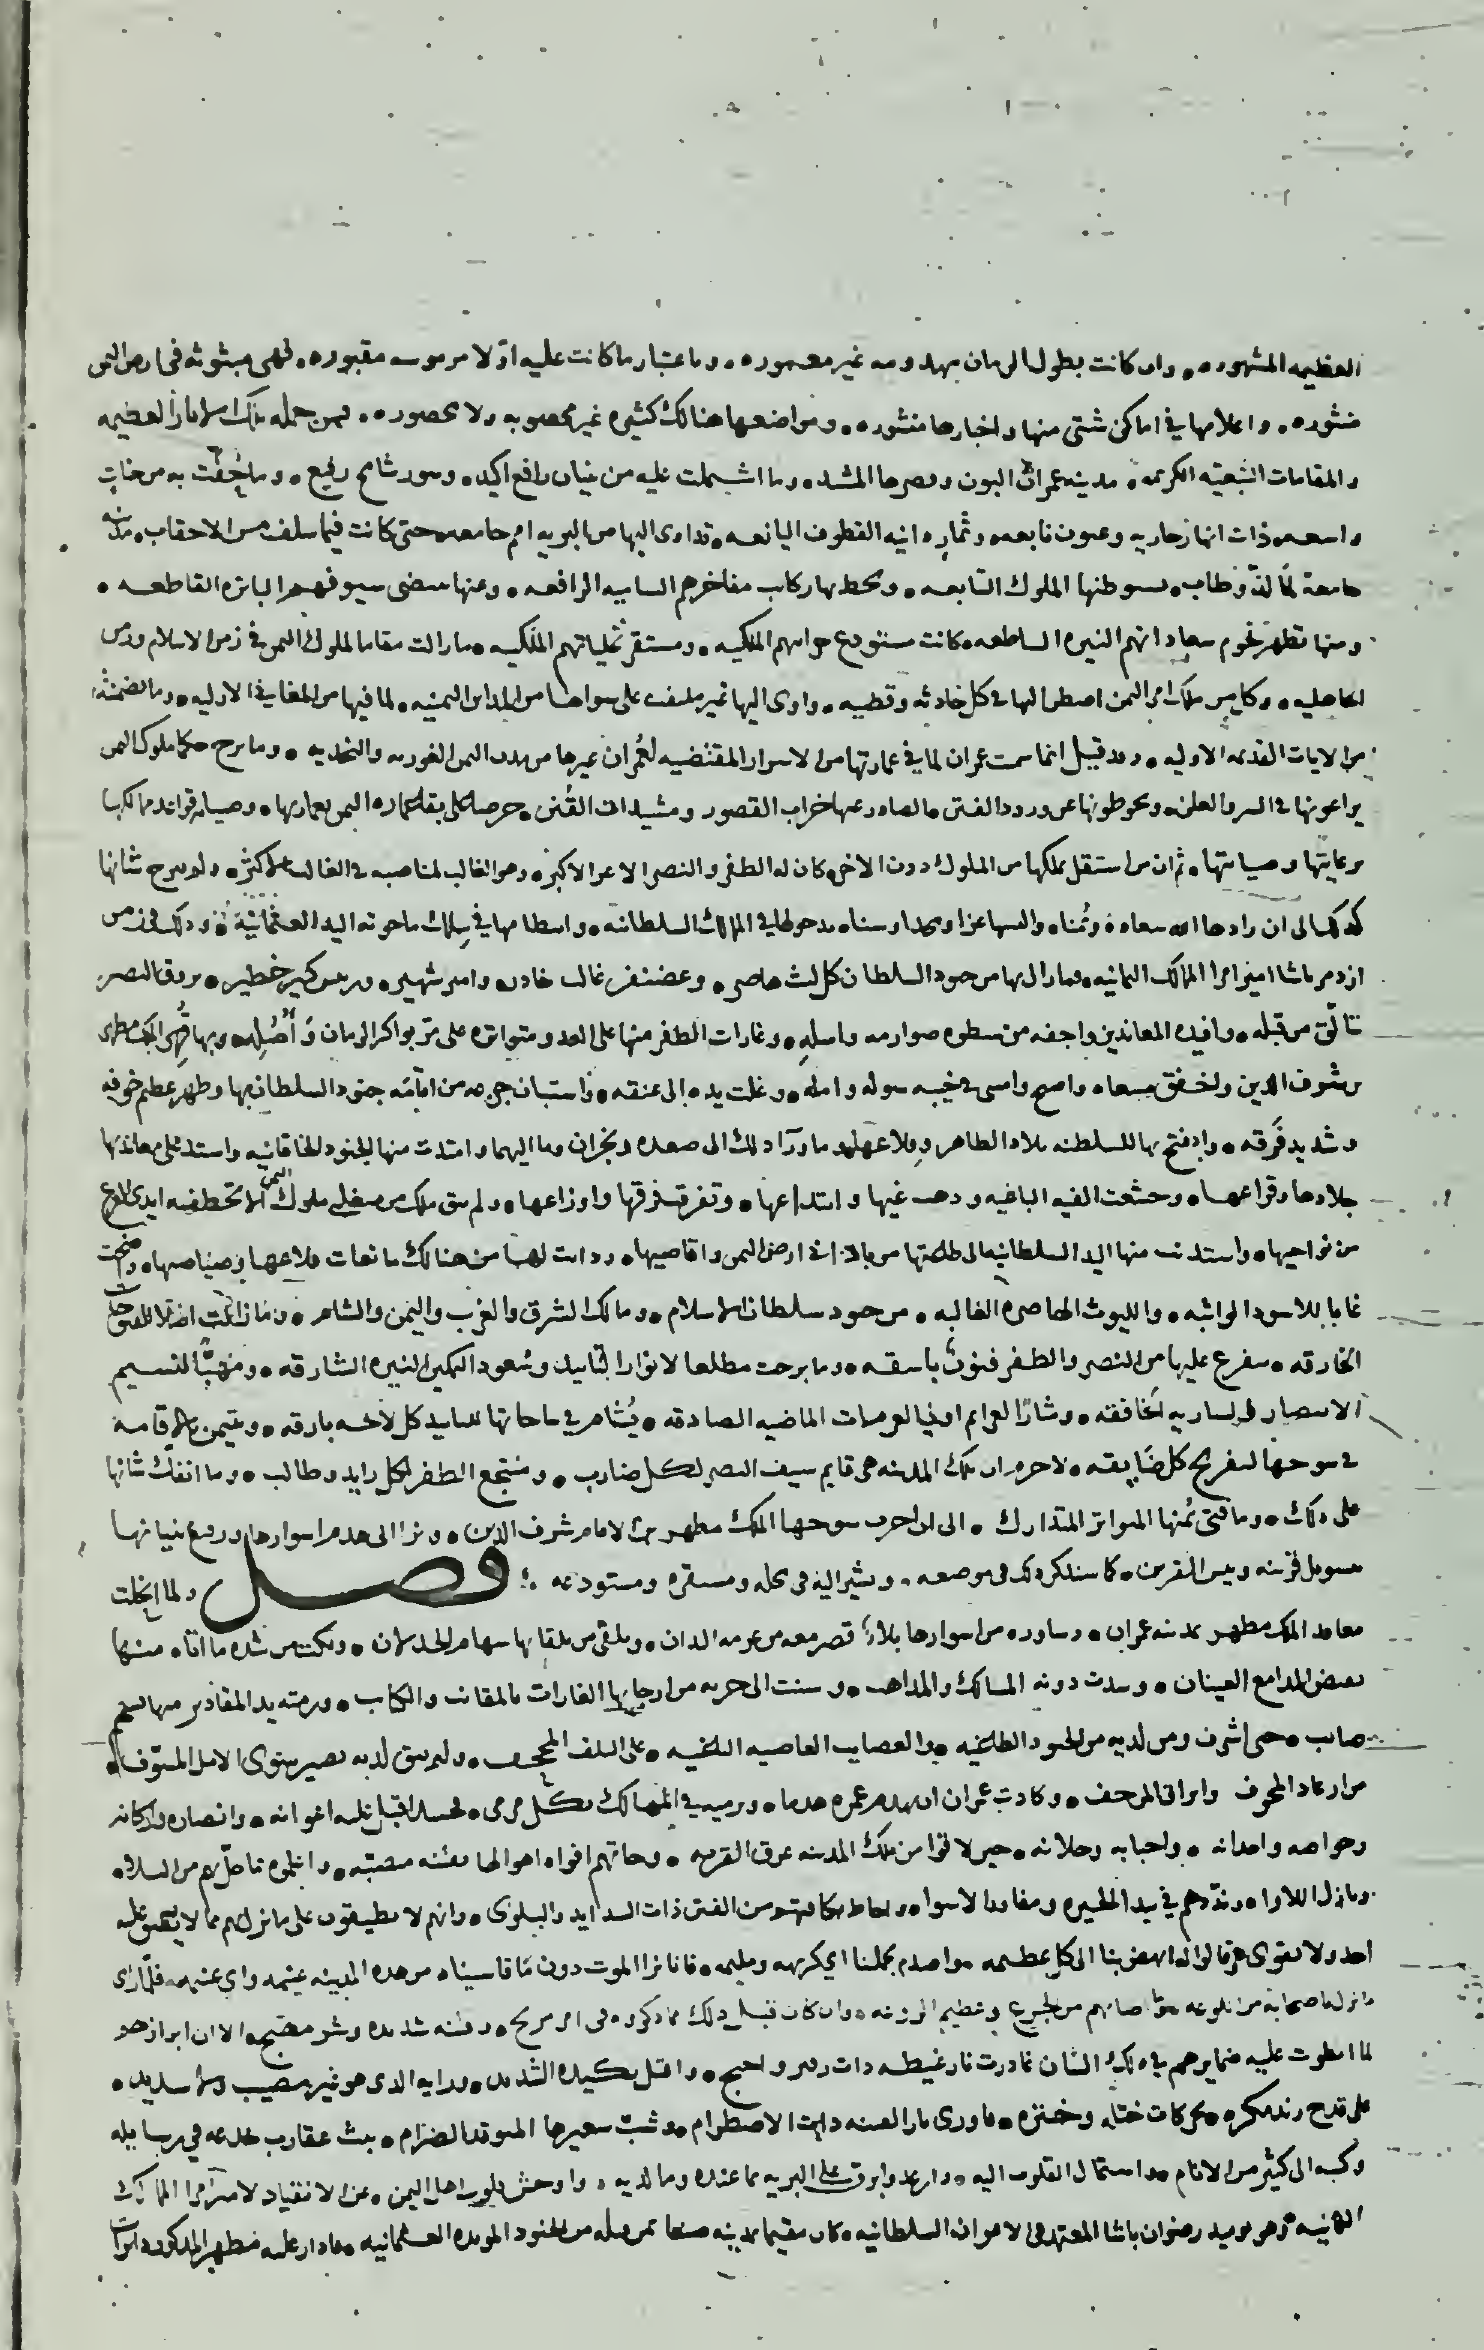 العظيمه المشهوره وان كانت بطول الزمان مهدومه غير معموره وباعتبار ما كانت عليه اوّلا مرموسه مقبوره فهى مبثوثه فى ارض اليمن
منثوره واعلامها في اماكن شتى منها واخبارها منشوره ومواضعها هنالك كثيره غير محصوبه ولا محصوره فمن جمله تلك الاثار العظيمه
والمقامات التبعيّه الكريمه مدينه عمران البون وقصرها المشيد وما اشتملت عليه من بنيان رافع اكيد وسور شامخ رفيع وما حُفّت به من جنات
واسعه ذات انهار جاريه وعيون نابعه وثمار دانيه القطوف اليانعه تداوى اليها من البريه امم جامعه حتى كانت فيما سلف من الاحقاب مدينه
جامعة لما لذّ وطاب يستوطنها الملوك التابعه ويحط بها ركاب مفاخرهم الساميه الرافعه ومنها تنتضى سيوفهم الباتره القاطعه
ومنها تظهر نجوم سعاداتهم النيره الساطعه كانت مستودع حرايمهم الملكيه ومستقر تمليكاتهم الفلكيه ما زالت مقاما لملوك اليمن في زمن الاسلام وزمن
الجاهليه وكاين من ملك في اليمن اضطر اليها فى كل حادثه وقضيه واوى اليها غير ملتفت على سواها من المداين اليمنيه لما فيها من المعانى الاوليه وما تضمنته
من الايات القديمه الاوليه وقد قيل انما سميت عمران لما في عمارتها من الاسرار المقتضيه لعمران غيرها من مدن اليمن الغوريه والنجديه وما برح حكما ملوك اليمن
يراعونها فى السر والعلن ويحوطونها عن ورود الفتن بالصادر عنها خراب القصور ومشيدات القنن حرصا على بقا عماره اليمن بعمارتها وصيانه قواعد ممالكها
برعايتها وصيانتها ثم ان من استقل بملكها من الملوك دون الاخر كان له الظفر والنصر الاعز الاكبر وهو الغالب لمناصبه في الغالب الاكثر ولم يبرح شانها
كذلك الى ان زادها الله سعاده ويُمنا والبسها عزا ومجدا وسناه بدخولها في الممالك السلطانيه وانتظامها في سلك ما حوته اليد العثمانيّه وذلك فى زمن
ازدمر باشا امير امرا الممالك اليمانيه فما زال بها من جنود السلطان كل ليث هاصر وغضنفر غالب خادر وامير شهير ورييس كبير خطير بروق النصر
تتالّق من قبله وافيده المعاندين واجفه من سطوه صوارمه واسله وغارات الظفر منها على العدو متواتره على مرّ بواكر الزمان وأُصُله وبها قُهر الملك مطهر
بن شرف الدين واخفق مسعاه واصبح وامسى فى خيبه سوله وامله وغلت يده إلى عنقه واستبان جزعه من اقامه جنود السلطان بها وظهر عظم خوفه
وشديد فرقه واذ فتح بها للسلطنه بلاد الظاهر وقلاعها وما ورآ ذلك الى صعده ونجران وما اليهما وامتدت منها الجنود الخاقانيه واستد على معاندها
جلادها وقراعها وخشعت الفيه الباغيه وذهب غيها وابتداعها وتفرقت فرقها واوزاعها ولم يبق ملك من متغلبى ملوك اليمن الا تخطفته ايدى الارتياع
من نواحيها واستدنت منها اليد السلطانيه الى طلبتها من بلاد ارض اليمن واقاصيها ودانت لها من هنالك مانعات قلاعها وصياصيها واضحت
غابا للاسود الواثبه والليوث الهاصره الغالبه من جنود سلطان الاسلام وممالك الشرق والغرب واليمن والشام
الخارقه يتفرع عليها من النصر والظفر فنونٌ باسقه وما برحت مطلعا لانوار التاييد وسعود التمكين النيره الشارقه ومَهبًّا لنسيم
الانتصار الساريه الخافقه ومثارًا لعزايم اولى العزمات الماضيه الصادقه يُشام في ساحاتها للتاييد كل لامعه بارقه ويتيمن بالاقامه
فى سوحها لتفريج كل ضايقه لا جرم ان تلك المدينه هى قايم سيف النصر لكل ضارب ومنتجع الظفر لكل رايد وطالب وما انفكّ شانها
على ذلك وما فتى يُمنها المتواتر المتدارك الى ان احرب سوحها الملك مطهر بن الامام شرف الدين ونزا الى هدم اسوارها ورفع بنيانها
بتسويل قرينه وبيس القرين كما سنذكر ذلك فى موضعه ونشير اليه فى محله ومستقره ومستودعه فصل ولما انحلت
معاقد الملك مطهر بمدينه عمران وساوره من اسوارها بلاءً قصر معه من عزمه الدان وتلقى من تلقايها سهام الخذلان وبكت من شده ما اتاه منها
ببعض المدامع العينان وسدت دونه المسالك والمذاهب وسنت الى حربه من ارجايها الغارات بالمقانب والكتايب ورمته يد المقادير منها بسهم
صايب حتى اشرف ومن لديه من الجنود الطاغيه والعصايب العاصيه الباغيه على التلف المجحف ولم يبق لديه نصير سوى الامل المسوّف
من ارعاد المخوف وابراق المرجف وكادت عمران ان تهدم عمره هدما وترميه في المهالك بكل مرمى فحينيذ اقبل عليه اعوانه وانصاره واركانه
وخواصه واخدانه واحبابه وخلانه حين لاقوا من تلك المدينه عرق القربه وجاتهم افواه اهوالها بفتنه مصبّه وابلوه بما حلّ بهم من البلاء
ونازل اللاوا وردّدهم في بيد الحيره ومفاوز الاسوا واحاط بكافتهم من الفتن ذات الشدايد والبلوى وانهم لا يطيقون على ما نزل بهم مما لا يطيق عليه
احد ولا يقوى وقالوا له انهض بنا الى كل عظيمه واصدم بجملتنا اي كريهه ومليمه فانا نرا الموت دون ما قاسيناه من هذه المدينه غنيمه واي غنيمه فلمّا راى
ما نزل باصحابه من البلوى وما اصابهم من الجزع وعظيم الرزيه وان كان قبل ذلك مما ذكروه فى امر مريج وفتنه شديده وشر مهيج الا ان ابراز هم
لما انطوت عليه ضمايرهم في ذلك الشان غادرت نار غيظه ذات زفير واجيج واقبل بكيده الشديد ورايه الذى هو غير مصيب ولا سديد
على قدح زند مكره بحركات ختله وختره فاورى نار الفتنه دايمه الاضطرام وشبّ سعيرها الموقد الضرام وبث عقارب خدعه في رسايله
وكتبه الى كثير من الانام واستمال القلوب اليه وارعد وابرق على البريه بما عنده وما لديه واوحش قلوب اهل اليمن عن الانقياد لامير امرا الممالك
اليمنيه وهو يوميذ رضوان باشا المعتمد فى الامور السلطانيه كان مقيما بمدينه صنعا بمن معه من الجنود المويده العثمانيه فادار عليه مطهر المذكور